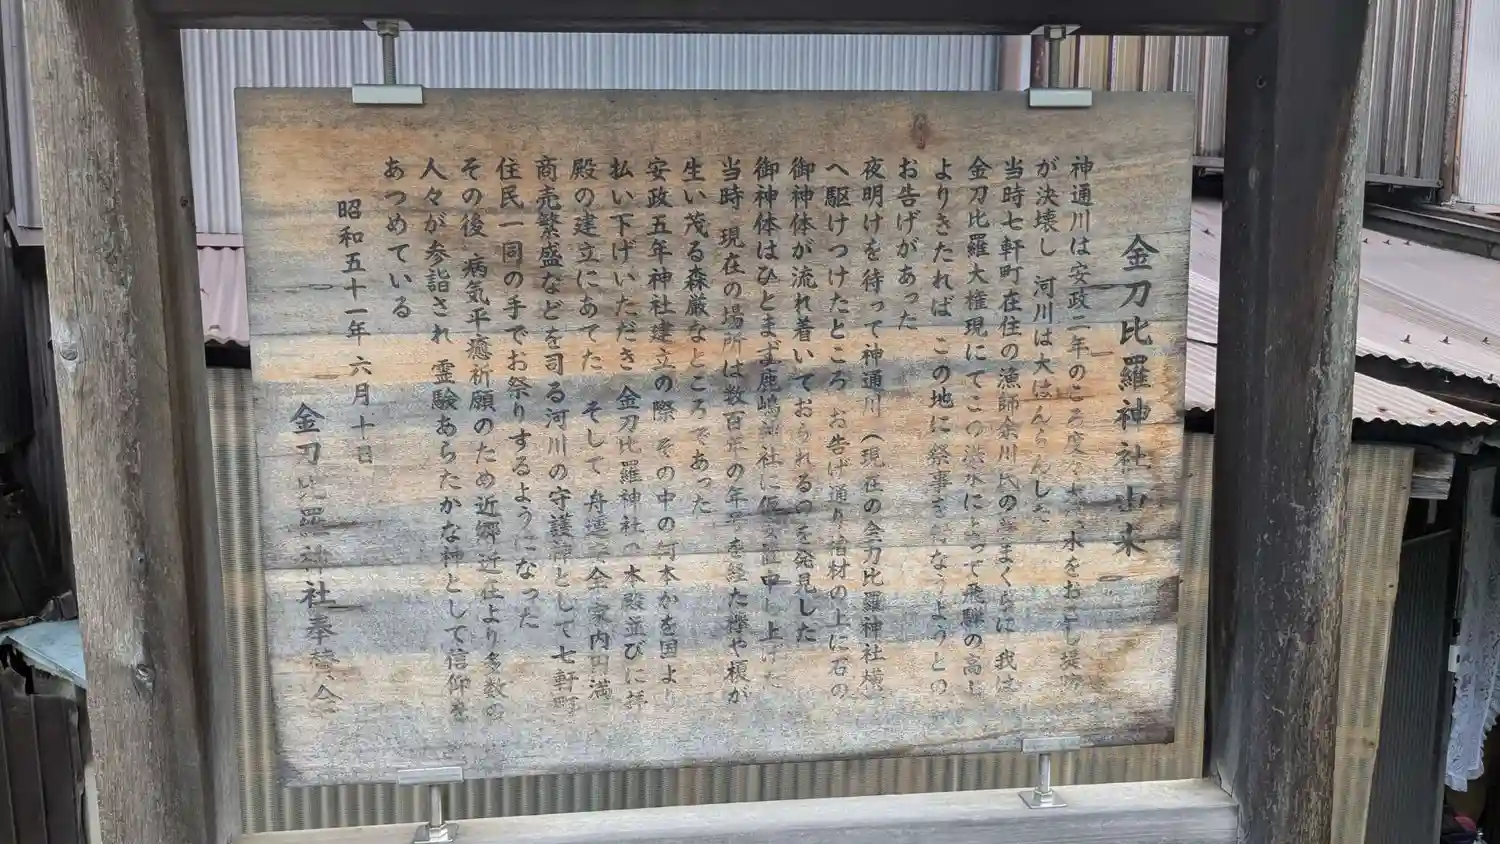 金刀比羅神社由来
神通川は安政二年のころ度々 水をおこし堤防
が決壊し 河川は大はんらんした
当時七軒町在住の漁師余川氏の 我は
金刀比羅大権現にてこの洪水によって飛騨の高
よりきたれば この地に祭事を なうようとの
お告げがあった
夜明けを待って神通川（現在の金刀比羅神社横）
へ駆けつけたところ お告げ通り 材の上に石の
御神体が流れ着いておられるのを発見した
御神体はひとまず鹿嶋神社に仮安置申し上げた
当時 現在の場所は数百年の年 を経た欅や榎が
生い茂る森厳なところであった
安政五年神社建立の際 その中の何本かを国より
払い下げいただき 金刀比羅神社の本殿並びに拝
殿の建立にあてた そして 舟運安全 家内円満
商売繁盛などを司る河川の守護神として七軒町
住民一同の手でお祭りするようになった
その後 病気平癒祈願のため近郷近在より多数の
人々が参詣され 霊験あらたかな神として信仰を
あつめている
昭和五十一年 六月 十日
金刀比羅神社奉賛会